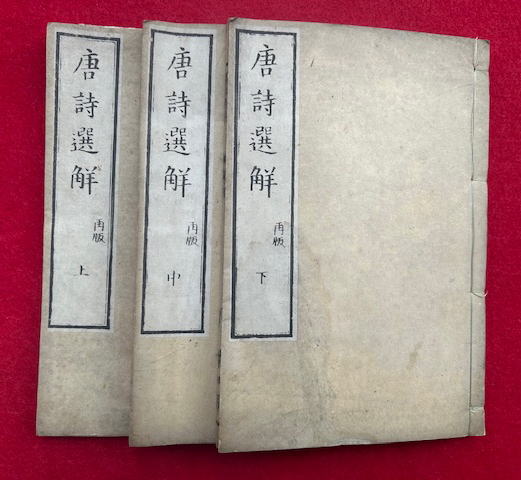 唐詩選解
再版
下
唐詩選解
再版
中
唐詩選解
再版
上